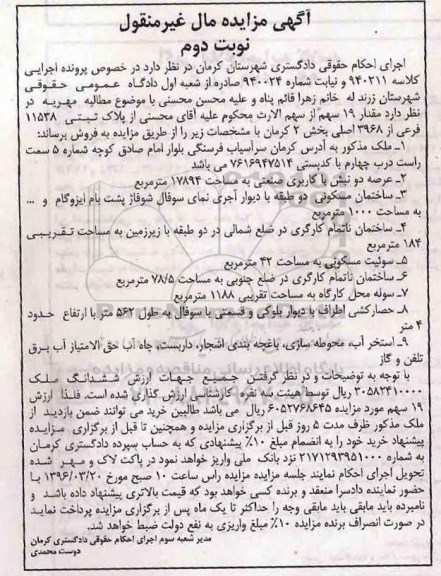 آگهی مزایده مال غیرمنقول
نوبت دوم
اجرای احکام حقوقی دادگستری شهرستان کرمان در نظر دارد در خصوص پرونده اجرایی
کلاسه ۹۴۰۲۱۱ و نیابت شماره ۹۴۰۰۲۴ صادره از شعبه اول دادگاه عمومی حقوقی
شهرستان زرند له خانم زهرا قائم پناه و علیه محسن محسنی با موضوع مطالبه مهریه در
نظر دارد مقدار ۱۹ سهم از سهم الارث محکوم علیه آقای محسنی از پلاک ثبتی ۱۱۵۳۸
فرعی از ۳۹۶۸ اصلی بخش ۲ کرمان با مشخصات زیر را از طریق مزایده به فروش برساند:
۱ـ ملک مذکور به آدرس کرمان سرآسیاب فرسنگی بلوار امام صادق کوچه شماره ۵ سمت
راست درب چهارم با کدپستی ۷۶۱۶۹۴۷۵۱۴ می باشد
۲ـ عرصه دو نبش با کاربری صنعتی به مساحت ۱۷۸۹۴ مترمربع
۳ـ ساختمان مسکونی دو طبقه با دیوار آجری نمای سوفال شوفاژ پشت بام ایزوگام و ...
به مساحت ۱۰۰۰ مترمربع
۴ـ ساختمان ناتمام کارگری در ضلع شمالی در دو طبقه با زیرزمین به مساحت تقریبی
۱۸۴ مترمربع
۵ـ سوئیت مسکونی به مساحت ۴۲ مترمربع
۶ـ ساختمان ناتمام کارگری در ضلع جنوبی به مساحت ۷۸/۵ مترمربع
۷ـ سوله محل کارگاه به مساحت تقریبی ۱۱۸۸ مترمربع
۸ـ حصارکشی اطراف با دیوار بلوکی و قسمتی با سوفال به طول ۵۶۲ متر با ارتفاع حدود
۴ متر
۹ـ استخر آب، محوطه سازی، باغچه بندی اشجار، داربست، چاه آب حق الامتیاز آب برق
تلفن و گاز
با توجه به توضیحات و در نظر گرفتن جمیع جهات ارزش ششدانگ ملک
۳۰۵۸۲۴۱۰۰۰۰ ریال توسط هیئت سه نفره کارشناسی ارزش گذاری شده است. فلذا ارزش
۱۹ سهم مورد مزایده ۶۰۵۲۷۶۸۶۴۵ ریال می باشد طالبین خرید می توانند ضمن بازدید از
ملک مذکور ظرف مدت ۵ روز قبل از برگزاری مزایده و همچنین تا قبل از برگزاری مزایده
پیشنهاد خرید خود را به انضمام مبلغ ۱۰٪ پیشنهادی که به حساب سپرده دادگستری کرمان
به شماره ۲۱۷۱۲۹۳۹۵۱۰۰۰ نزد بانک ملی واریز خواهد نمود در پاکت لاک و مهر شده
تحویل اجرای احکام نمایند جلسه مزایده راس ساعت ۱۰ صبح مورخ ۱۳۹۶/۰۳/۲۰ با
حضور نماینده دادسرا منعقد و برنده کسی خواهد بود که قیمت بالاتری پیشنهاد داده باشد و
نامبرده باید مابقی وجه را حداکثر تا یک ماه پس از برگزاری مزایده پرداخت نماید
در صورت انصراف برنده مزایده ۱۰٪ مبلغ واریزی به نفع دولت ضبط خواهد شد.
مدیر شعبه سوم اجرای احکام حقوقی دادگستری کرمان
دوست محمدی